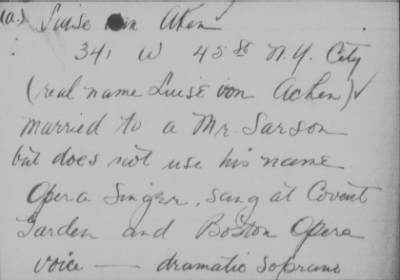 (a.) Luise von Aken
341 W 45 St N.Y. City
(real name Luise von Achen) ✓
married to a Mr. Sarson
but does not use his name
Opera Singer, sang at Covent
Garden and Boston Opera
voice — dramatic Soprano